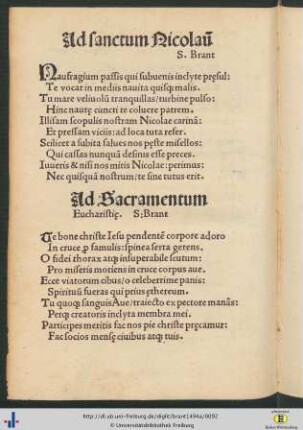 Ad sanctum Nicolaū
S. Brant
Naufragium passis qui subuenis inclyte pręsul:
Te vocat in mediis nauita quisqꝫ malis.
Tu mare veliuolū tranquillas/turbine pulso:
Hinc nautę cuncti te coluere patrem.
Illisam scopulis nostram Nicolae carinā:
Et pressam viciis: ad loca tuta refer.
Scilicet a subita salues nos pęste misellos:
Qui cassas nunquā desinis esse preces.
Iuueris & nisi nos mitis Nicolae: perimus:
Nec quisquā nostrum/te sine tutus erit.
Ad Sacramentum
Eucharistię. S: Brant
Te bone christe Iesu pendentē corpore adoro
In cruce ꝓ famulis: spinea serta gerens.
O fidei thorax atqꝫ insuperabile scutum:
Pro miseris moriens in cruce corpus aue.
Ecce viatorum cibus/o celeberrime panis:
Spirituū fueras qui prius ęthereum.
Tu quoqꝫ sanguis Aue/traiecto ex pectore manās:
Perqꝫ creatoris inclyta membra mei.
Participes meritis fac nos pie christe pręcamur:
Fac socios mensę ciuibus atqꝫ tuis.
http://dl.ub.uni-freiburg.de/diglit/brant1494a/0092
© Universitätsbibliothek Freiburg